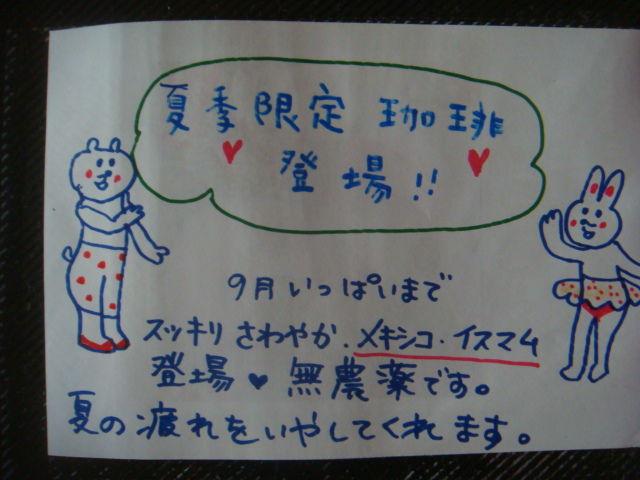 夏季限定 珈琲
登場!!
9月いっぱいまで
スッキリさわやか.メキシコ・イスマム
登場♥無農薬です。
夏の疲れをいやしてくれます。